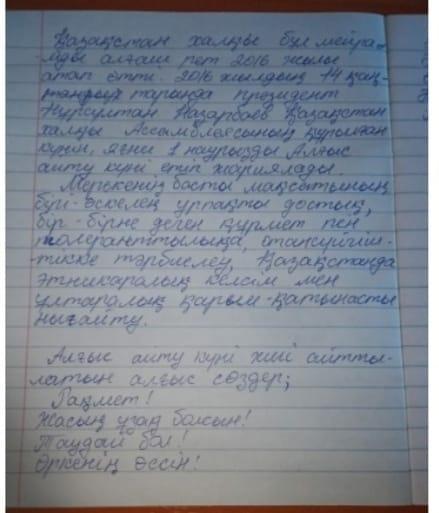 Қазақстан халқы бұл мейра-
мды алғаш рет 2016 жылы
атап өтті. 2016 жылдың 14 қаң-
тарында президент
Нұрсұлтан Назарбаев Қазақстан
халқы Ассамблеясының құрылған
күнін, яғни 1 наурызды Алғыс
айту күні етіп жариялады.
Мерекенің басты мақсатының
бірі - өскелең ұрпақты достық,
бір-біріне деген құрмет пен
толеранттылыққа, отансүйгіш-
тікке тәрбиелеу, Қазақстанда
этникаралық келісім мен
ұлтаралық қарым-қатынасты
нығайту.
Алғыс айту күні жиі айтты-
латын алғыс сөздер;
Рақмет!
Жасың ұзақ болсын!
Таудай бол!
Өркенің өссін!